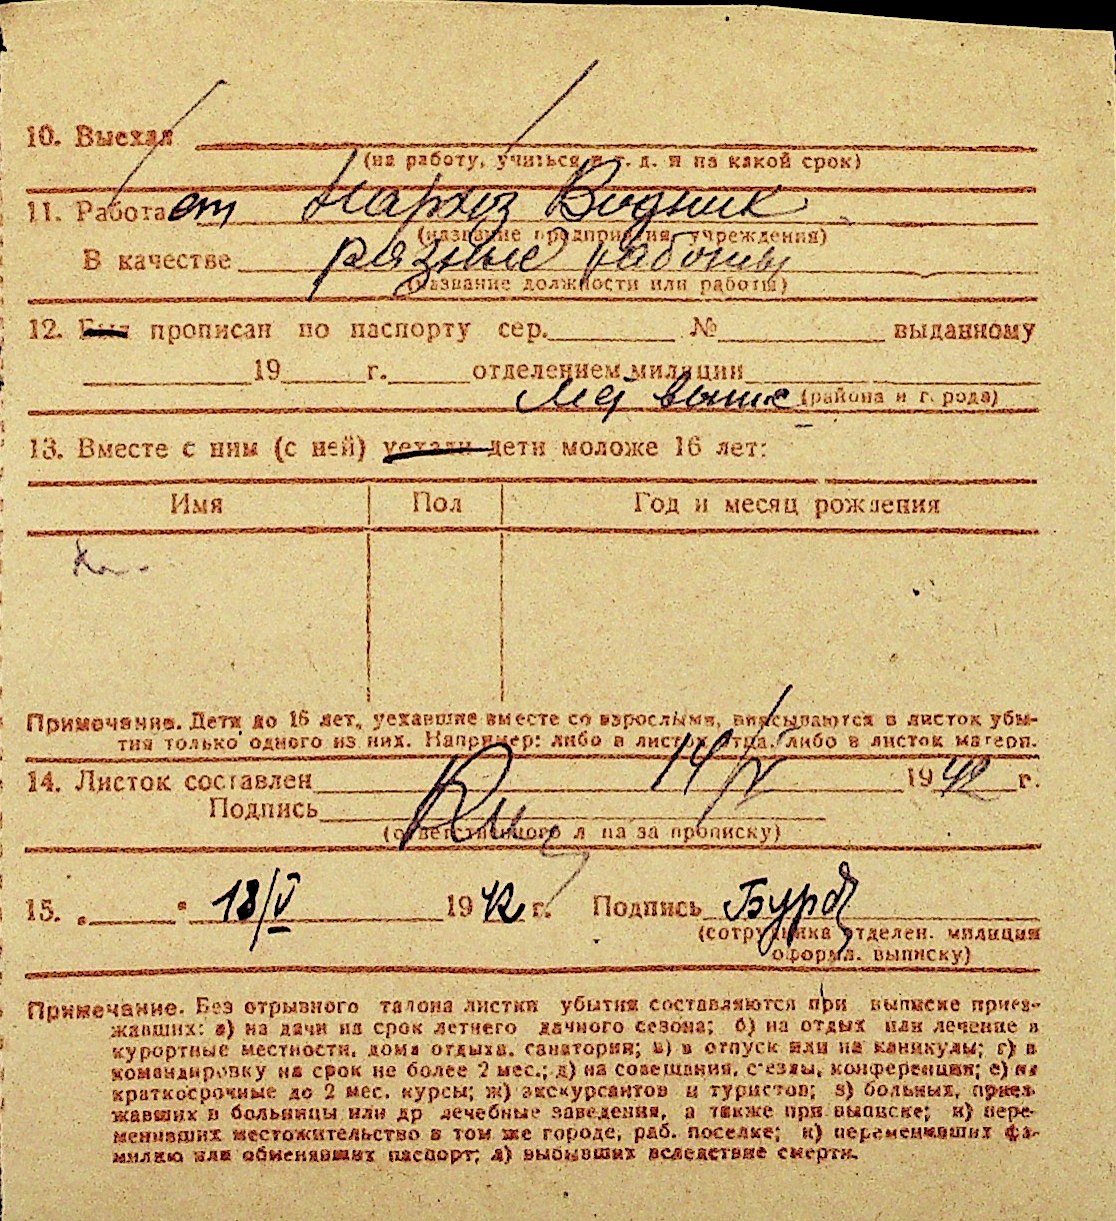 10. Выехал
(на работу, учиться и т. д. и на какой срок)
11. Работает Нархоз Водник
(название предприятия, учреждения)
В качестве разные работы
(название должности или работы)
12. Был прописан по паспорту сер. № выданному
19 г. отделением милиции
выше (района и города)
13. Вместе с ним (с ней) уехали дети моложе 16 лет:
Имя Пол Год и месяц рождения
Примечание. Дети до 16 лет, уехавшие вместе со взрослыми, вписываются в листок убы-
тия только одного из них. Например: либо в листок отца, либо в листок матери.
14. Листок составлен 14/V 1942 г.
Подпись
(ответственного лица за прописку)
15. „ " 18/V 1942 г. Подпись
(сотрудника отделен. милиции
оформл. выписку)
Примечание. Без отрывного талона листки убытия составляются при выписке приез-
жавших: а) на дачи на срок летнего дачного сезона; б) на отдых или лечение в
курортные местности, дома отдыха, санатории; в) в отпуск или на каникулы; г) в
командировку на срок не более 2 мес.; д) на совещания, с'езды, конференции; е) на
краткосрочные до 2 мес. курсы; ж) экскурсантов и туристов; з) больных, приез-
жавших в больницы или др лечебные заведения, а также при выписке; и) пере-
менивших местожительство в том же городе, раб. поселке; к) переменивших фа-
милию или обменявших паспорт; л) выбывших вследствие смерти.